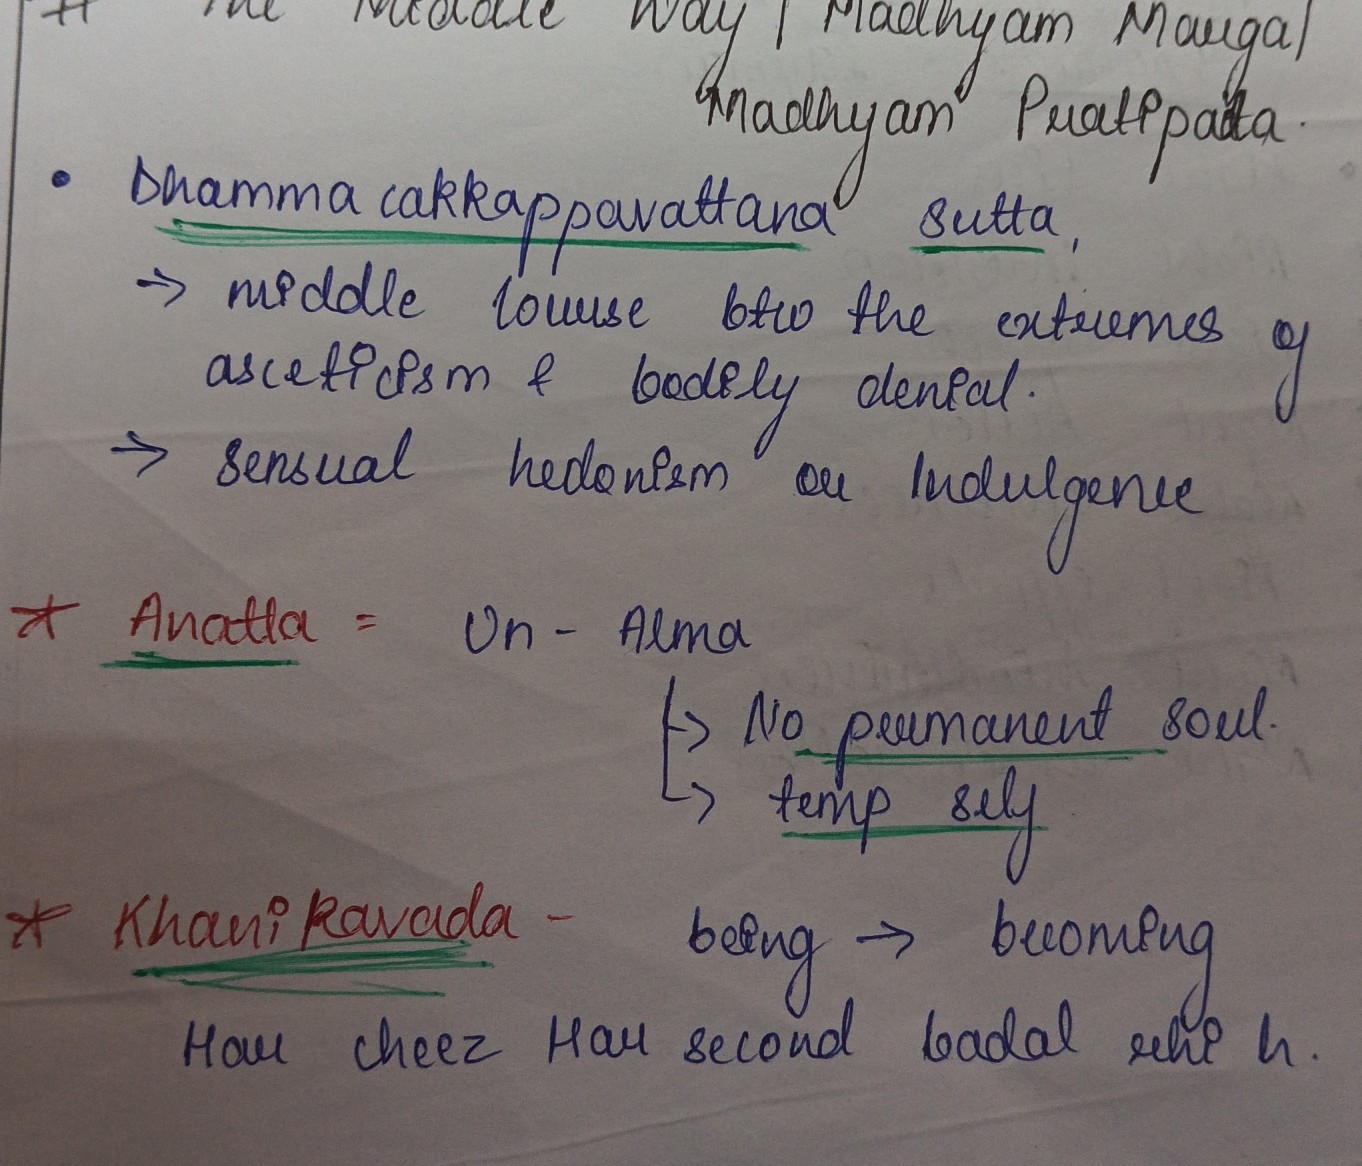 # The Middle Way / Madhyam Marga /
Madhyam Pratipada.
• Dhammacakkappavattana sutta,
→ middle course btw the extremes of
asceticism & bodily denial.
→ sensual hedonism or Indulgence
* Anatta = Un - Atma
↳ No permanent soul.
↳ temp self
* Khanikavada - being → becoming
Har cheez Har second badal rhi h.